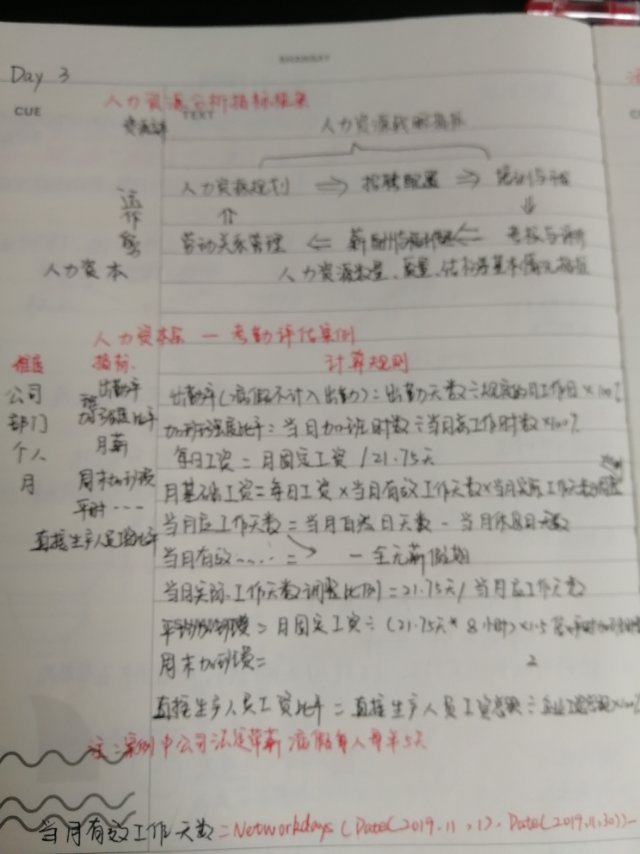 Day 3
CUE
TEXT
人力资源分析指标框架
人力资源战略指标
人力资源规划 ⇒ 招聘配置 ⇒ 培训与
⇑ ⇓
运作
劳动关系管理 ⇐ ⇐ 考核与
人力资本 人力资源数量、质量、结构等基本情况指标
人力资本层 — 考勤评估案例
维度 指标. 计算规则
公司 出勤率 出勤率(病假不计入出勤) = 出勤天数 ÷ 规定的月工作日 × 100%
部门 加班强度比率 加班强度比率 = 当月加班时数 ÷ 当月总工作时数 × 100%
个人 月薪 每日工资 = 月固定工资 / 21.75天
月 周末加班费 月基础工资 = 每日工资 × 当月有效工作天数 × 当月实际工作天数
平时 ...
当月应工作天数 = 当月日天数 - 当月休息日天数
直接生产人员工资比率
当月有效 ..... = - 全无薪假期
当月实际工作天数调整比例 = 21.75天 / 当月应工作天数
平时加班费 = 月固定工资 ÷ (21.75天 * 8小时) × 1.5
周末加班费 = 2
直接生产人员工资比率 = 直接生产人员工资总额 ÷ 企业工资总额 × 100%
注:案例中公司法定带薪病假每人每年5天
当月有效工作天数 = Networkdays (Date(2019.11.1). Date(2019.11.30)) -